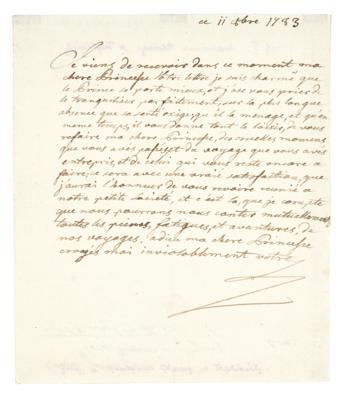 ce 11 8bre 1783
Je viens de recevoir dans ce moment ma
chere Princesse votre lettre je suis charmé que
le Prince se porte mieux, et j'ose vous prier de
tranquiliser parfaitement, sur la plus longue
absence que sa santé exige, qui le menage, et qu'en
meme temps, il vous donne tout le loisir, de vous
refaire ma chere Princesse, des mechés momens
que vous avés passés et du voyage que vous avés
entrepris, et de celui qui vous reste encore a
faire, ce sera avec une vrais satisfaction, que
j'aurai l'honneur de vous revoire reunié a
notre petite société, et c'est la, que je compte
que nous pourrons nous conter mutuellement
toutes les peines, fatigues, et avantures, de
nos voyages, adieu ma chere Princesse
croyés moi inviolablement votre